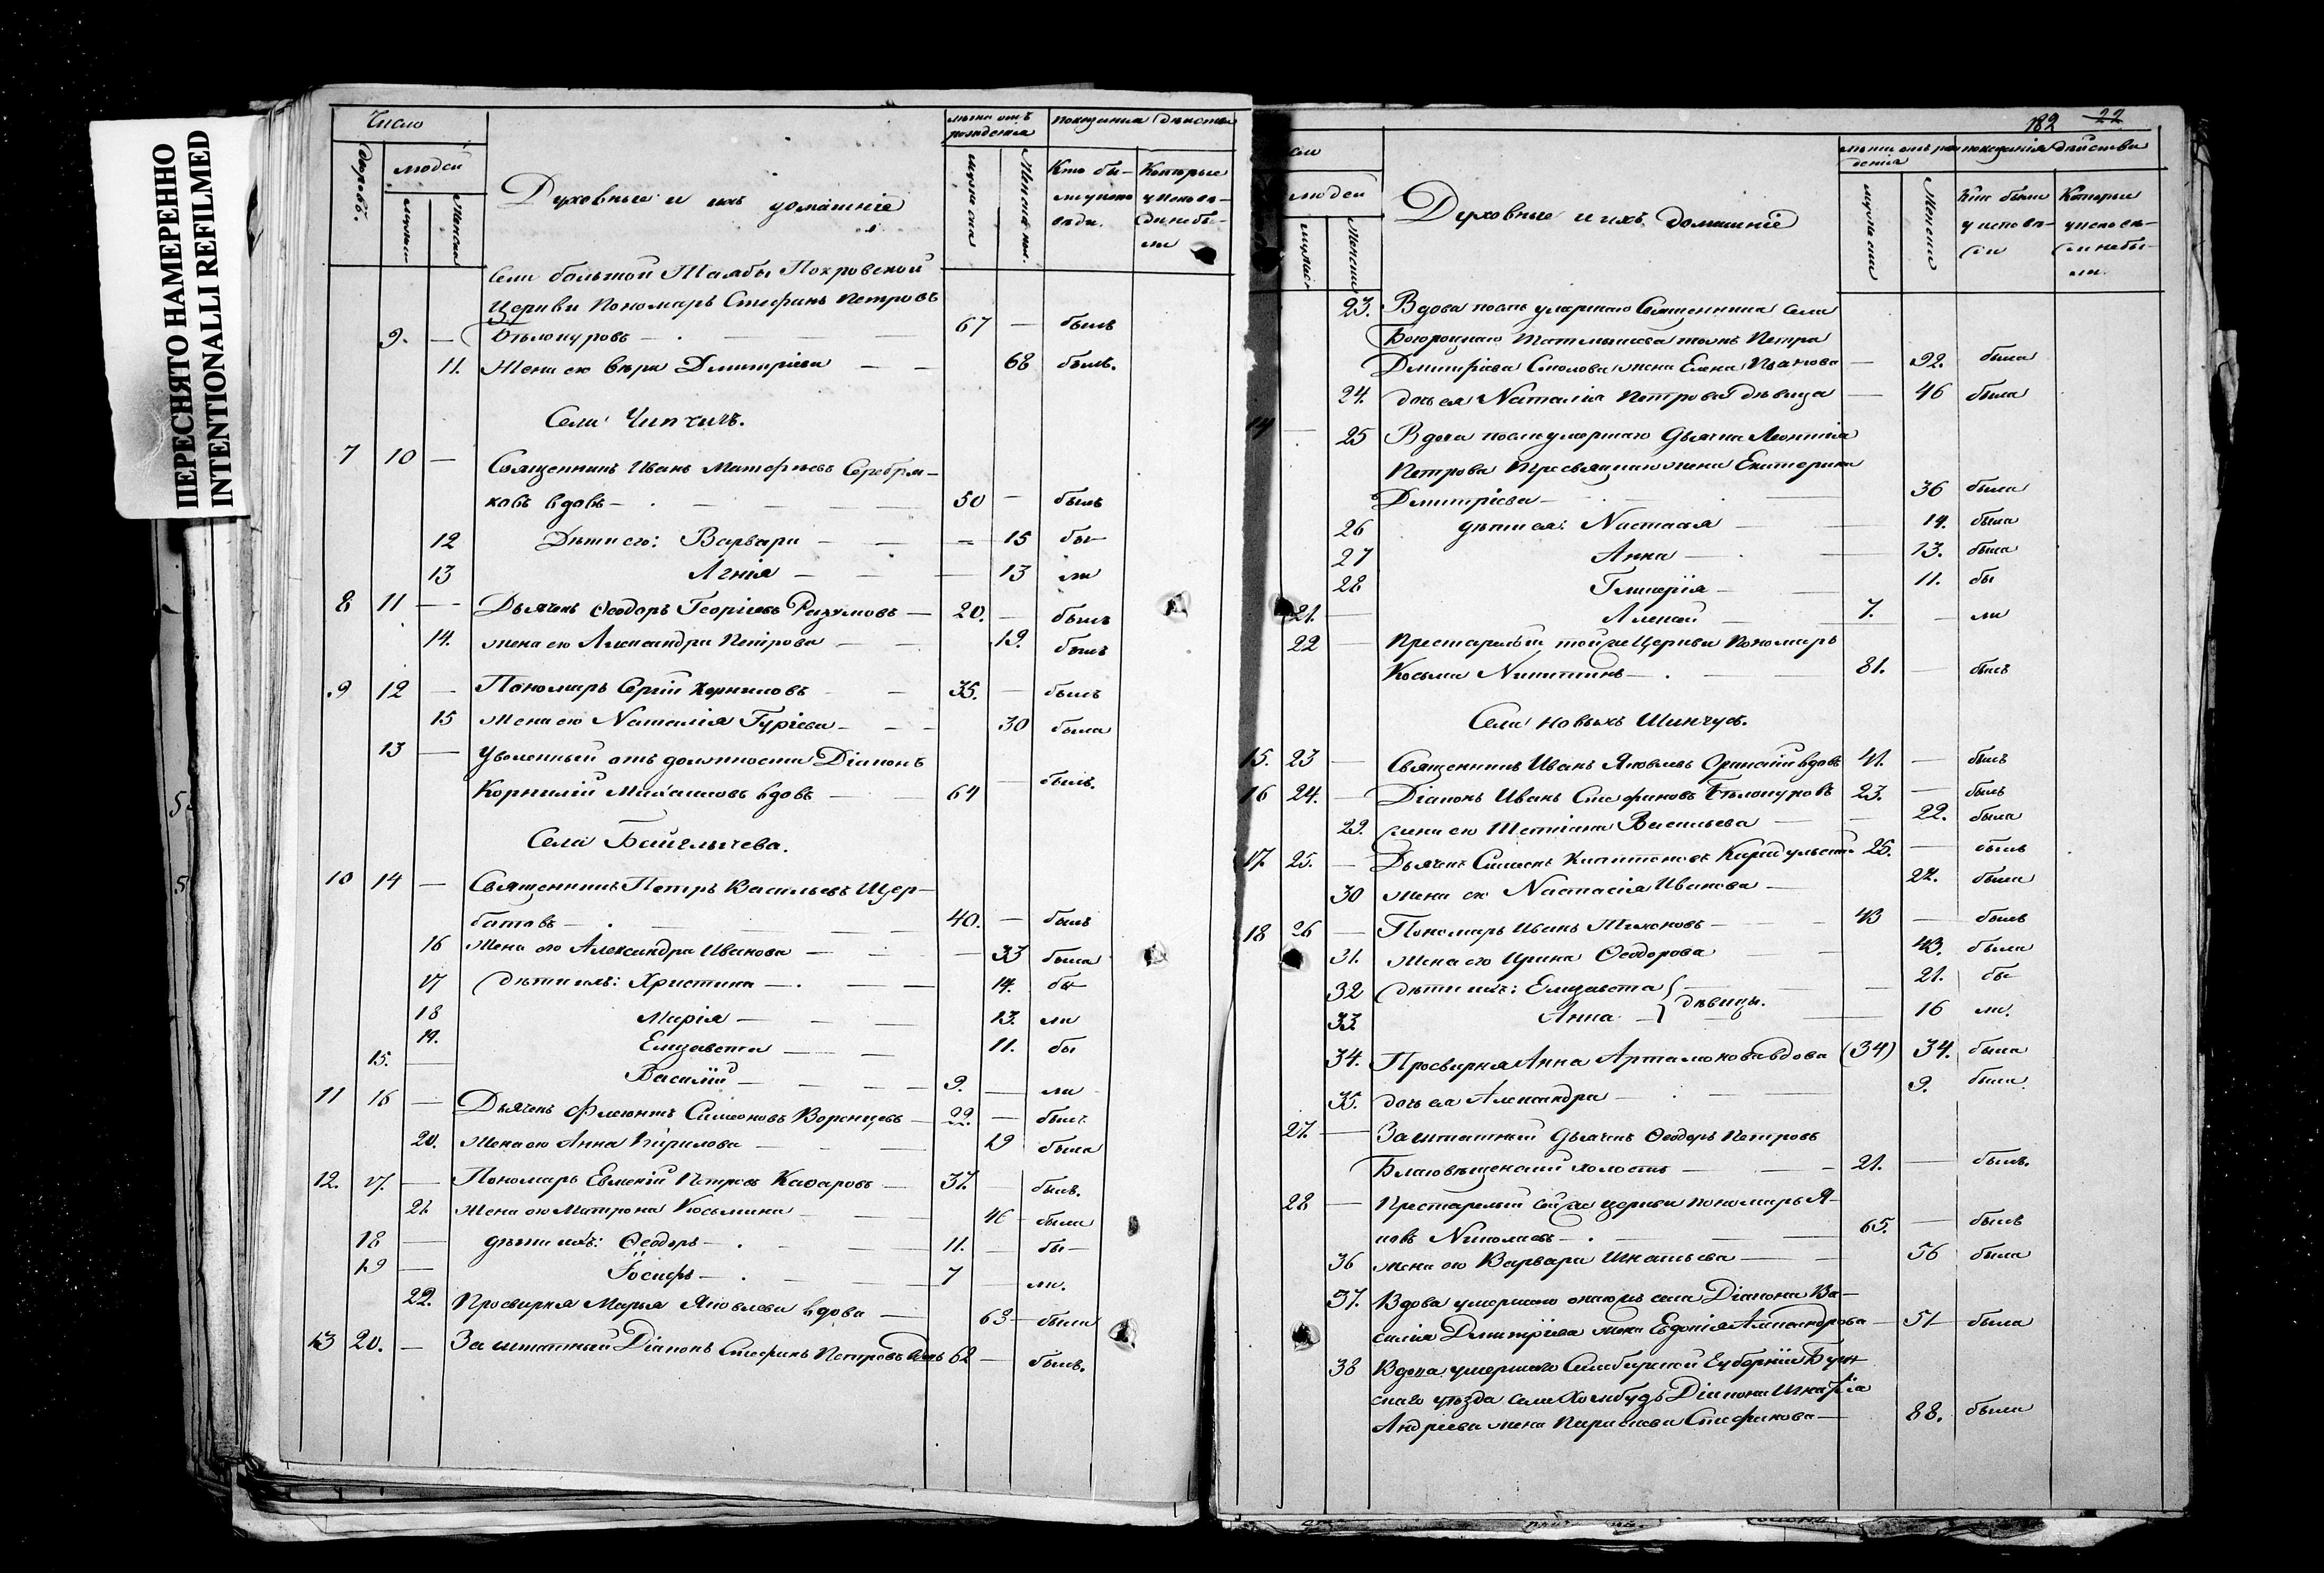 ПЕРЕСНЯТО НАМЕРЕННО
INTENTIONALLI REFILMED
Число
людей
дворовъ.
Духовные и ихъ домашніе
лѣта отъ рожденія
показанія дѣйства
Кто бы-
ли у испо
вѣди.
Которые
у исповѣ-
ди небы-
ли
Села большой Таябы Покровской
Церкви Пономарь Стефанъ Петровъ
9. — Бѣлокуровъ — 67 — былъ
11. Жена его Вѣра Димитріева — 68 былъ.
Села Чипчигъ.
7 10 — Священникъ Иванъ Матфѣевъ Серебря-
ковъ вдовъ — 50 — былъ
12 Дѣти его: Варвара — 15 бы-
13 Агнія — 13 ли
8 11 — Дьячекъ Ѳеодоръ Георгіевъ Разумовъ — 20. — былъ
14. жена его Александра Петрова — 19. былъ
9 12 — Пономарь Сергій Корниловъ — 35. — былъ
15 Жена его Наталія Гурьева — 30 была
13 — Уволенный отъ должности Діаконъ
Корнилій Михаиловъ вдовъ — 64 — былъ.
Села Байглычева.
10 14 — Священникъ Петръ Васильевъ Щер-
батовъ — 40. — былъ
16 Жена его Александра Иванова — 33 была
17 Дѣти ихъ: Христина — 14. бы-
18 Марія — 13. ли
19. Елизавета — 11. бы
15. — Василій — 9. — ли
11 16 — Дьячекъ Флегонтъ Симеоновъ Воронцевъ — 22. — былъ
20. Жена его Анна Кирилова — 19 была
12. 17. — Пономарь Евменій Петровъ Казаровъ — 37. былъ.
21. Жена его Матрона Косьмина — 40 — была
18 — дѣти ихъ: Ѳеодоръ — 11. — бы-
19 — Іосифъ — 7 — ли.
22. Просвирня Марья Яковлева вдова — 63 — была
13 20. — Заштатный Діаконъ Стефанъ Петровъ 62 — былъ.
182 22
людей
Духовные и ихъ домашніе
показанія дѣйства
Кто были
у исповѣ-
ди
Которые
у исповѣ-
ди небы-
ли.
23. Вдова послѣ умершаго Священника Села
Димитріева Смолова жена Елена Иванова — 92. была
24. дочь ея Наталія Петрова дѣвица — 46 была
14 — 25 Вдова послѣ умершаго Дьячка Леонтія
Петрова жена Екатерина
Димитріева — 36 была
26 дѣти ея: Настасія — 14. была
27 Анна — 13. была
28 Гликерія — 11. бы
21. — Алексѣй — 7. — ли
22 — Престарелый тойже Церкви Пономарь
Косьма Никитинъ — 81. — былъ
Села Новыхъ Шимкусъ.
15. 23 — Священникъ Иванъ Яковлевъ вдовъ 41. — былъ
16 24. — Діаконъ Иванъ Стефановъ Бѣлокуровъ 23. — былъ
29. жена его Татіана Васильева — 22. была
17. 25. — Дьячекъ Симеонъ Капитоновъ 25. — былъ
30 жена его Настасія Иванова — 22. была
18 26 — Пономарь Иванъ Тихоновъ — 43 — былъ
31. Жена его Ирина Ѳеодорова — 43. была
32 дѣти ихъ: Елизавета } дѣвицы. — 21. бы
33. Анна — 16 ли.
34. Просвирня Анна Артамонова вдова (34) 34. была
35. дочь ея Александра — 9. была.
27. — Заштатный Дьячекъ Ѳеодоръ Петровъ
Благовѣщенскій холостъ — 21. — былъ.
28 — Престарелый сейже церкви пономарь Я-
ковъ Николаевъ — 65. — былъ
36 жена его Варвара Игнатьева — 56 была
37. Вдова умершаго онагожъ села Діакона Ва-
силія Димитріева жена Евдокія Александрова — 51 — была
38 Вдова умершаго Симбирской Губерніи Буин
скаго уѣзда села Хомбусь Діакона Игнатія
Андреева жена Параскева Стефанова — 88. была